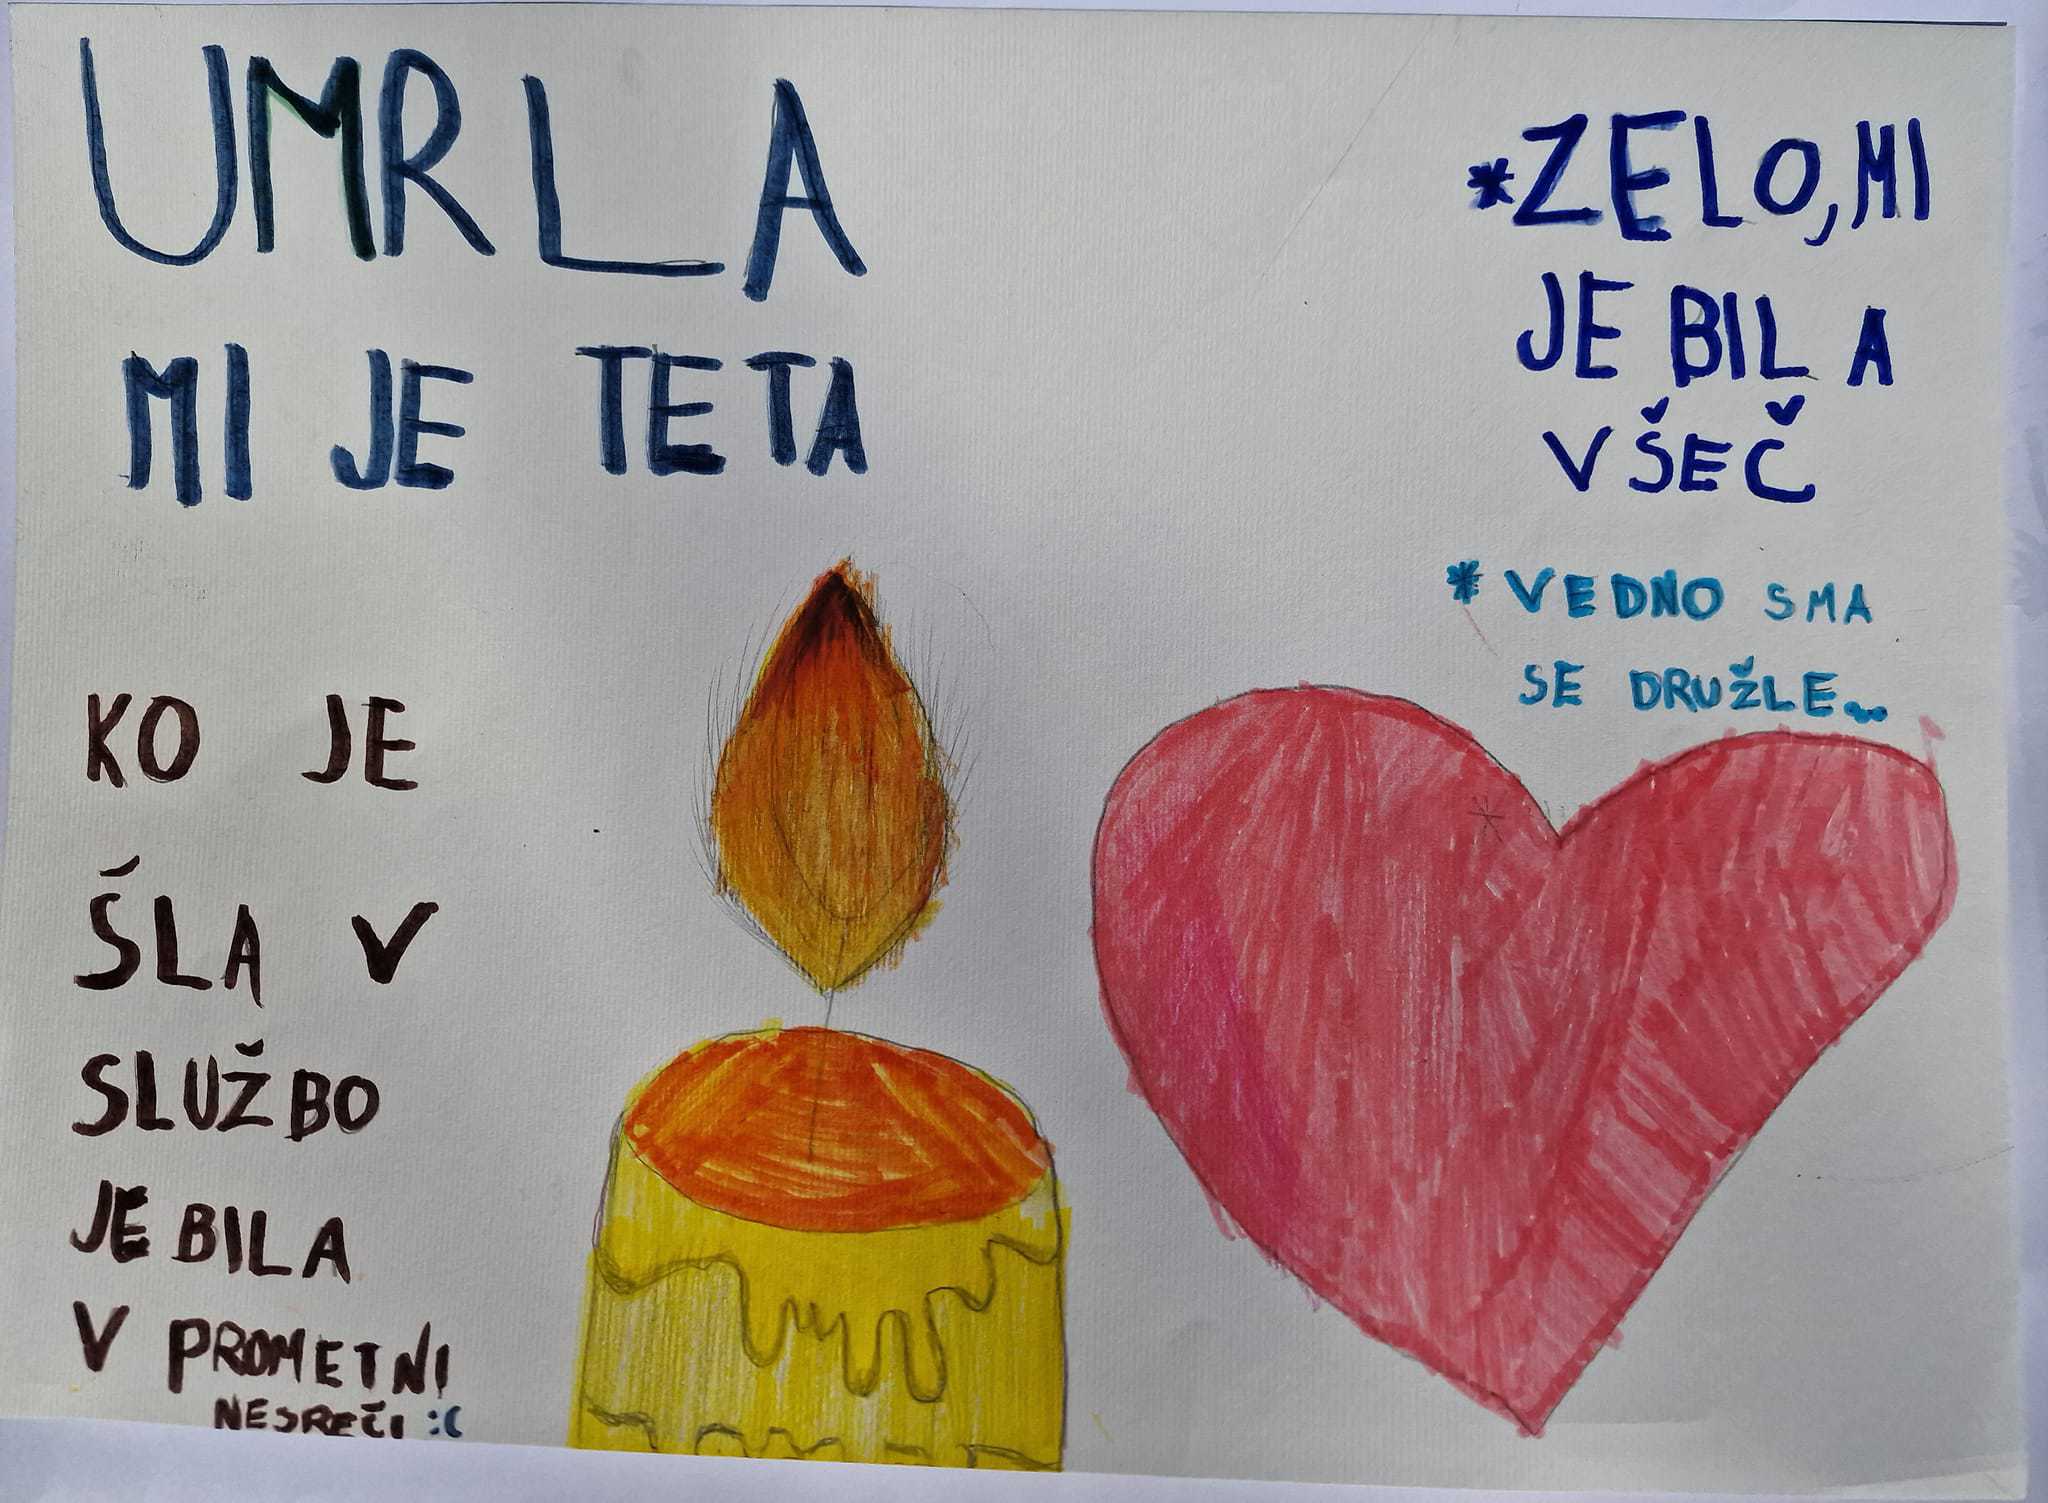 UMRLA
MI JE TETA
KO JE
ŠLA V
SLUŽBO
JE BILA
V PROMETNI
NESREČI :(
*ZELO, MI
JE BILA
VŠEČ
* VEDNO SMA
SE DRUŽLE...